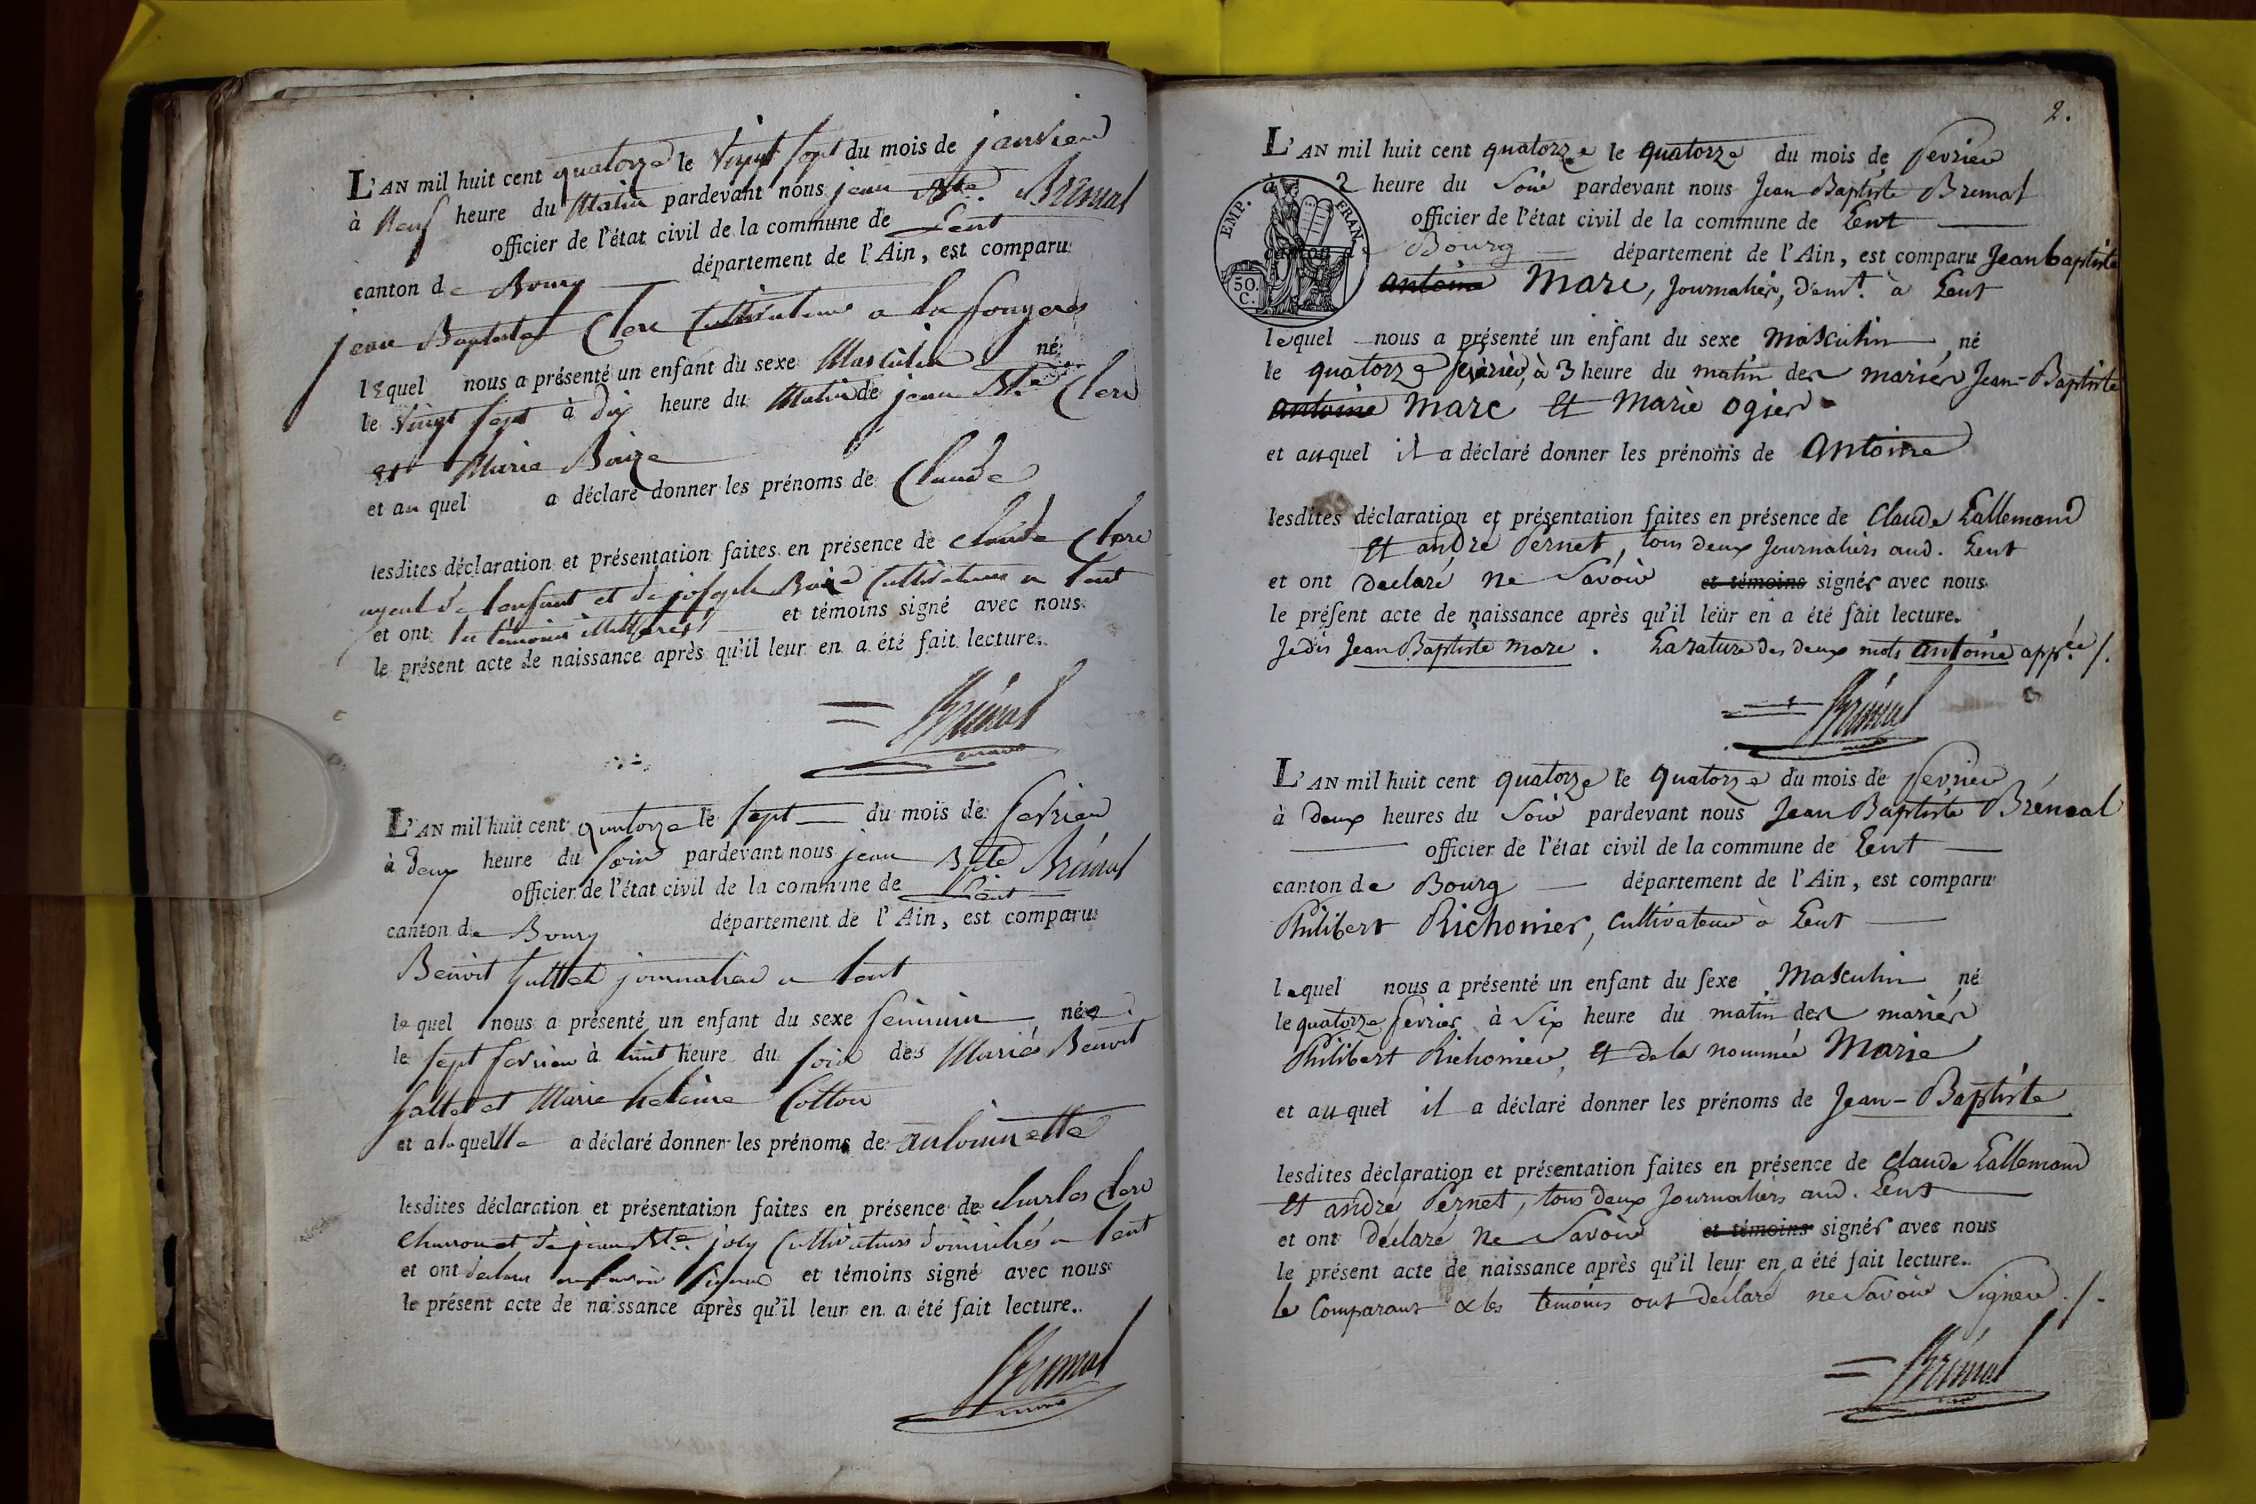 L'AN mil huit cent quatorze le vingt sept du mois de janvier
à Neuf heure du Matin pardevant nous jean Bte. Brémal
officier de l'état civil de la commune de Lent
canton de Bourg département de l'Ain, est comparu
jean Baptiste Clerc Cultivateur a la fougeres
lequel nous a présenté un enfant du sexe Masculin né
le vingt sept à dix heure du Matin de jean Bte Clerc
et Marie Boize
et au quel a déclaré donner les prénoms de Claude
lesdites déclaration et présentation faites en présence de claude Clerc
ayeul de l'enfant et de joseph Cultivateurs a Lent
et ont les témoins illitteres et témoins signé avec nous
le présent acte de naissance après qu'il leur en a été fait lecture.
Brémal
L'AN mil huit cent quatorze le sept du mois de fevrier
à deux heure du soir pardevant nous jean Bte. Brémal
officier de l'état civil de la commune de Lent
canton de Bourg département de l'Ain, est comparu
Benoit journalier a Lent
le quel nous a présenté un enfant du sexe feminin née
le sept fevrier à huit heure du soir des Mariés Benoit
et Marie helene Cotton
et a laquelle a déclaré donner les prénoms de antoinette
lesdites déclaration et présentation faites en présence de Charles Clerc
charron et de jean Bte. joly Cultivateurs domiciliés a Lent
et ont declaré ne savoir signer et témoins signé avec nous
le présent acte de naissance après qu'il leur en a été fait lecture.
Brémal
2.
L'AN mil huit cent quatorze le quatorze du mois de fevrier
à 2 heure du Soir pardevant nous Jean Baptiste Bremal
officier de l'état civil de la commune de Lent
EMP. FRAN
50. C.
canton de Bourg département de l'Ain, est comparu Jean baptiste
antoine Marc, Journalier, demt. à Lent
lequel nous a présenté un enfant du sexe masculin né
le quatorze fevrier, à 3 heure du matin des mariés Jean-Baptiste
antoine Marc et Marie Ogier
et auquel il a déclaré donner les prénoms de Antoine
lesdites déclaration et présentation faites en présence de Claude Lallemand
et andré Pernet, tous deux Journaliers aud. Lent
et ont declaré ne Savoir et témoins signér avec nous
le présent acte de naissance après qu'il leur en a été fait lecture.
Je dis Jean Baptiste Marc. La rature des deux mots antoine appée /.
Brémal
L'AN mil huit cent quatorze le quatorze du mois de fevrier
à deux heures du Soir pardevant nous Jean Baptiste Brémal
officier de l'état civil de la commune de Lent
canton de Bourg département de l'Ain, est comparu
Philibert Richonier, cultivateur à Lent
lequel nous a présenté un enfant du sexe Masculin né
le quatorze fevrier à Six heure du matin des mariés
Philibert Richonier, et de la nommée Marie
et auquel il a déclaré donner les prénoms de Jean-Baptiste
lesdites déclaration et présentation faites en présence de Claude Lallemand
et andré Pernet, tous deux Journaliers aud. Lent
et ont déclaré ne Savoir et témoins signér avec nous
le présent acte de naissance après qu'il leur en a été fait lecture.
le Comparant & les témoins ont déclaré ne Savoir Signer ./.
Brémal